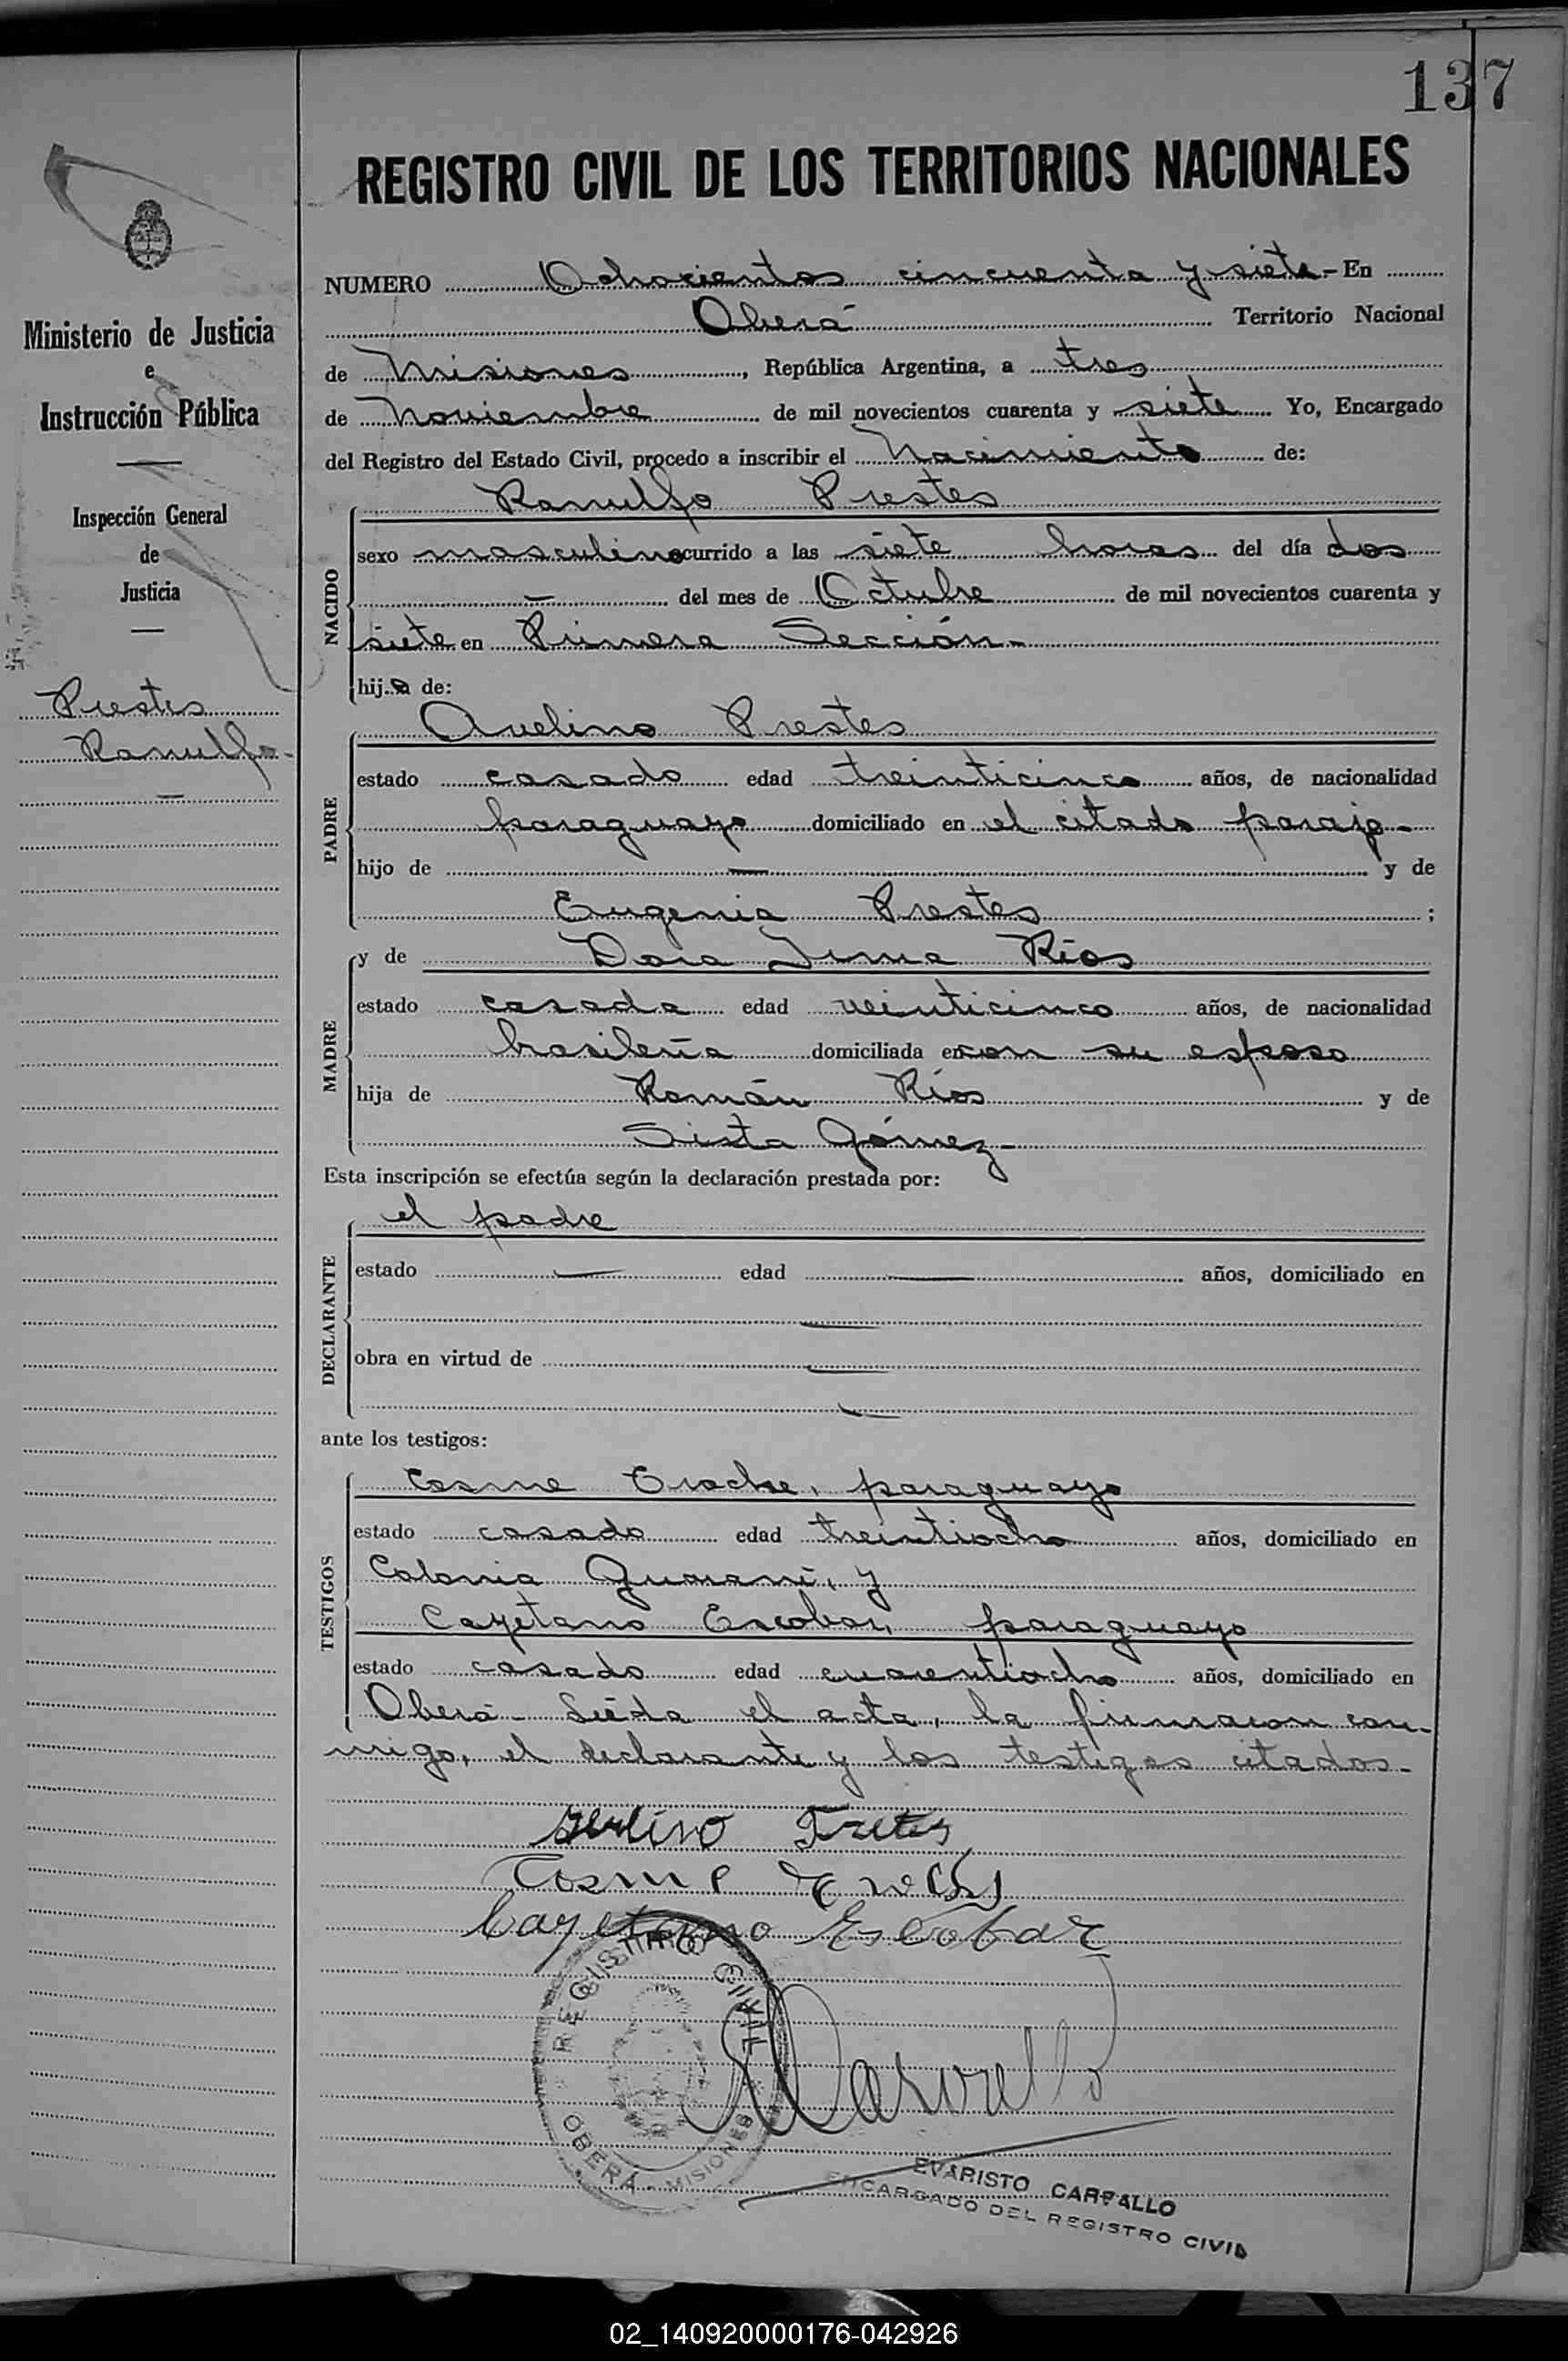 137
REGISTRO CIVIL DE LOS TERRITORIOS NACIONALES
NUMERO Ochocientos cincuenta y siete.- En
Oberá Territorio Nacional
de Misiones, República Argentina, a tres
de Noviembre de mil novecientos cuarenta y siete Yo, Encargado
del Registro del Estado Civil, procedo a inscribir el Nacimiento de:
Ranulfo Prestes
NACIDO
sexo masculino ocurrido a las siete horas del día dos
— del mes de Octubre de mil novecientos cuarenta y
siete en Primera Sección-
hijo de:
Avelino Prestes
PADRE
estado casado edad treinticinco años, de nacionalidad
paraguayo domiciliado en el citado paraje-
hijo de — y de
Eugenia Prestes ;
y de Dora Irma Ríos
MADRE
estado casada edad veinticinco años, de nacionalidad
brasileña domiciliada en con su esposo
hija de Román Ríos y de
Sixta Gómez-
Esta inscripción se efectúa según la declaración prestada por:
el padre
DECLARANTE
estado — edad — años, domiciliado en
—
obra en virtud de —
—
ante los testigos:
Cosme Eroche, paraguayo
TESTIGOS
estado casado edad treintiocho años, domiciliado en
Colonia Guaraní, y
Cayetano Escobar, paraguayo
estado casado edad cuarentiocho años, domiciliado en
Oberá- Leída el acta, la firmaron con-
migo, el declarante y los testigos citados-
Fretes
Cosme
Cayetano Escobar
REGISTRO CIVIL
OBERÁ - MISIONES
EVARISTO CARVALLO
ENCARGADO DEL REGISTRO CIVIL
Ministerio de Justicia
e
Instrucción Pública
Inspección General
de
Justicia
Prestes
Ranulfo-
—
02_140920000176-042926